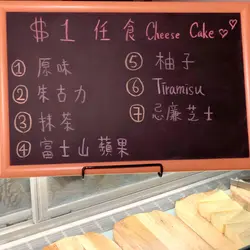 $1 任食 Cheese Cake
① 原味
② 朱古力
③ 抹茶
④ 富士山蘋果
⑤ 柚子
⑥ Tiramisu
⑦ 忌廉芝士